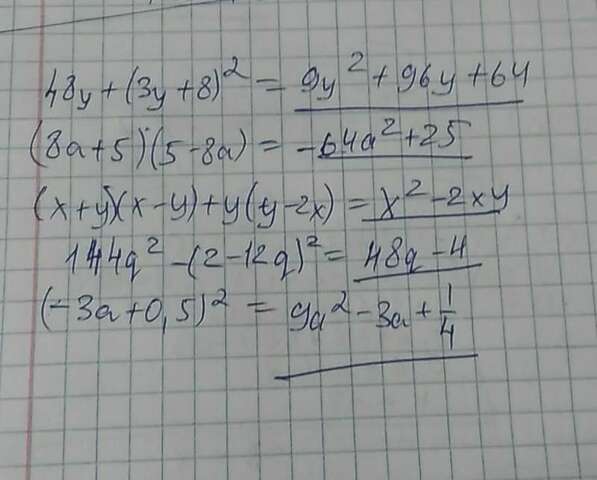 48y + (3y + 8)² = 9y² + 96y + 64
(8a + 5)(5 - 8a) = -64a² + 25
(x + y)(x - y) + y(y - 2x) = x² - 2xy
144q² - (2 - 12q)² = 48q - 4
(-3a + 0,5)² = 9a² - 3a + 1/4